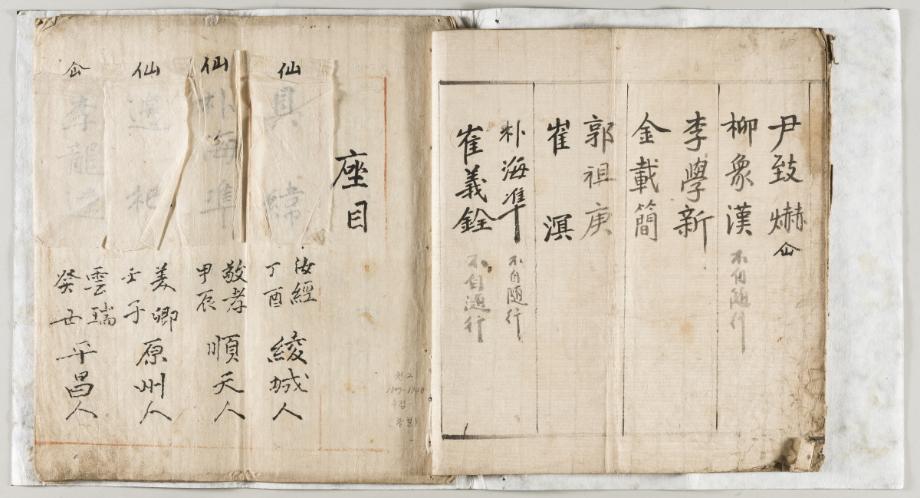 尹致爀 仚
柳象漢 不自随行
李學新
金載簡
郭祖庚
崔溟
朴海準 不自随行
崔義銓 不自隨行
座目
仙 具 汝經 丁酉 綾城人
仙 朴海準 敬孝 甲辰 順天人
仙 美卿 壬子 原州人
仚 李龍 雲瑞 癸丑 平昌人